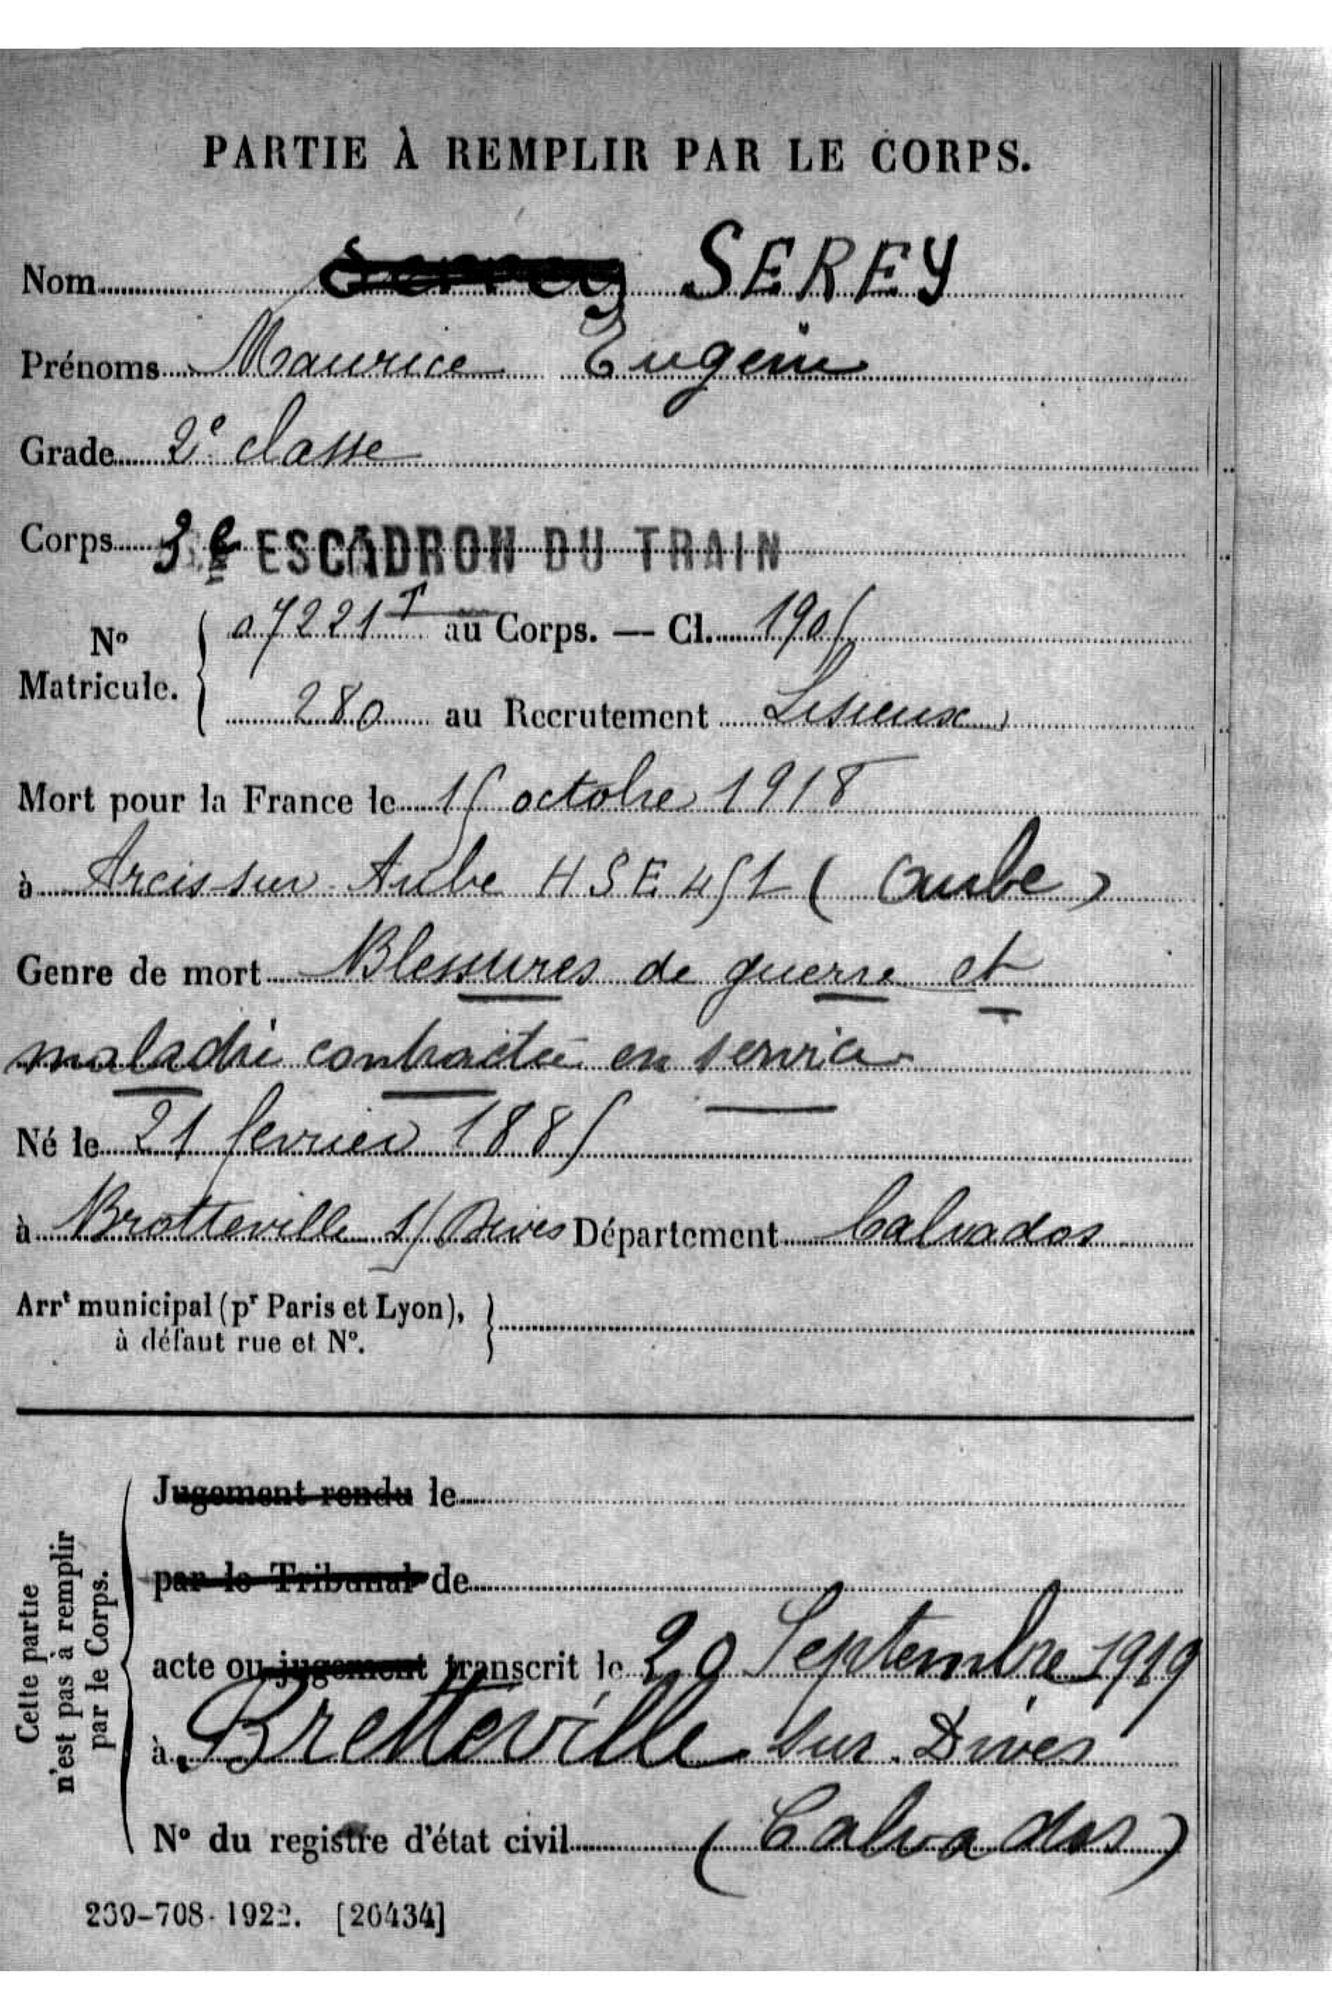 PARTIE À REMPLIR PAR LE CORPS.
Nom Serrey SEREY
Prénoms Maurice Eugène
Grade 2e classe
Corps 3e ESCADRON DU TRAIN
No Matricule. 07221 T au Corps. — Cl. 1905
280 au Recrutement Lisieux
Mort pour la France le 15 octobre 1918
à Arcis sur Aube H S E 451 (Aube)
Genre de mort Blessures de guerre et
maladie contractée en service
Né le 21 fevrier 1885
à Brotteville s/ Dives Département Calvados
Arrt municipal (pr Paris et Lyon),
à défaut rue et No.
Cette partie
n'est pas à remplir
par le Corps.
Jugement rendu le
par le Tribunal de
acte ou jugement transcrit le 29 Septembre 1919
à Bretteville sur Dives
No du registre d'état civil (Calvados)
239-708-1922. [26434]